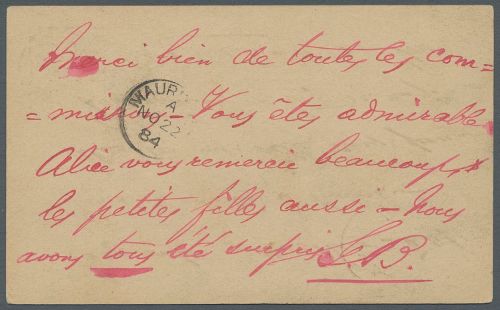 Merci bien de toutes les com=
=missions - Vous êtes admirable
Alice vous remercie beaucoup,
les petites filles aussi - Nous
avons tous été surpris S.B.
MAUR
A
NO 22
84